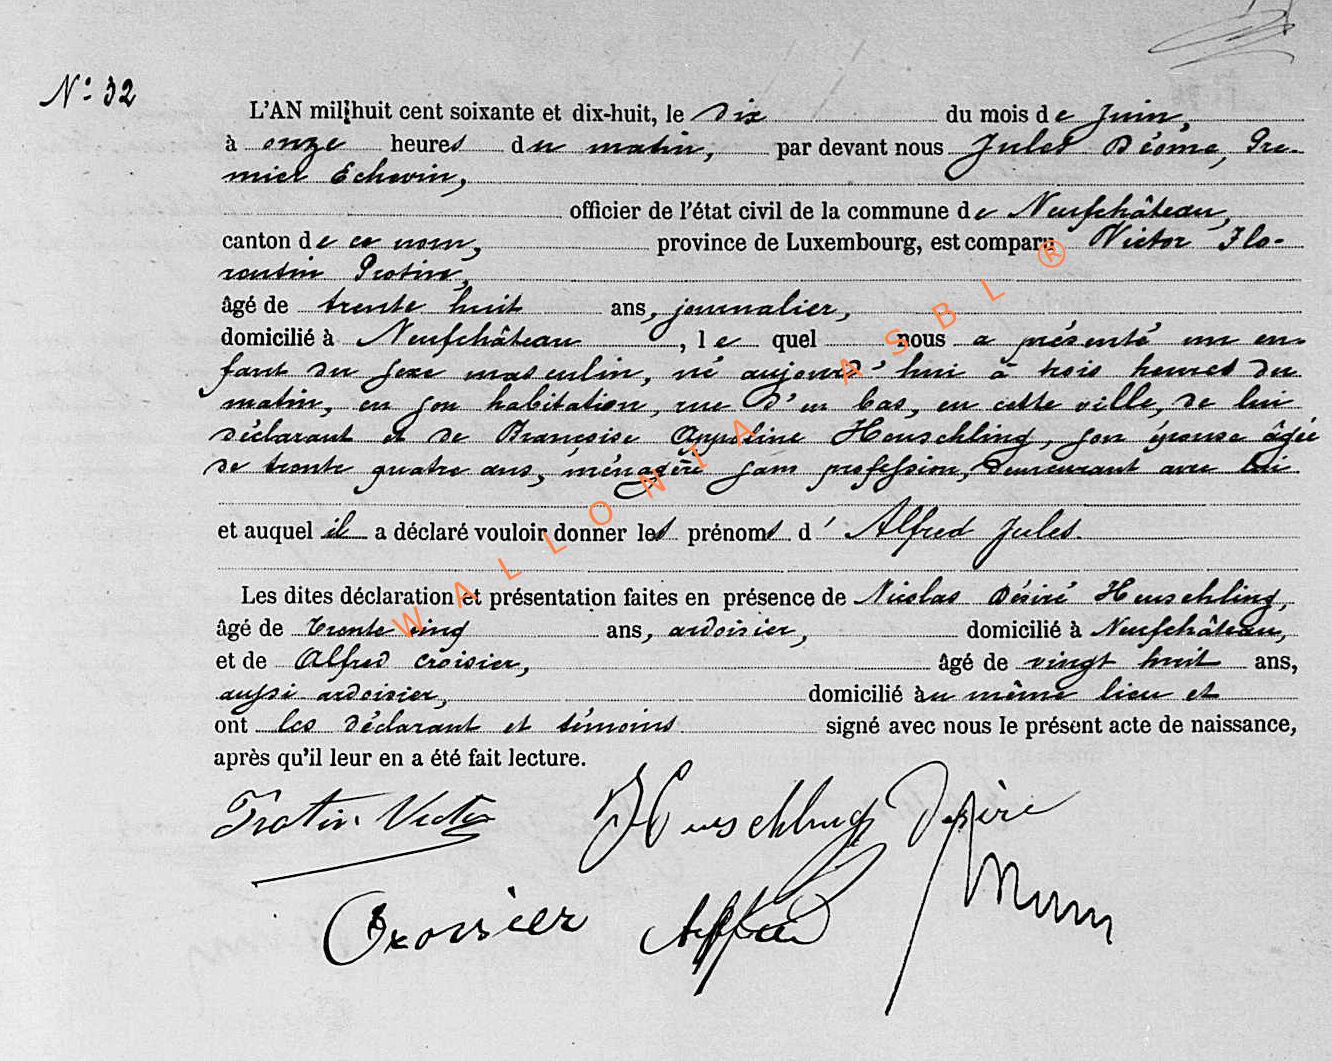 N° 32
L'AN mil huit cent soixante et dix-huit, le dix du mois de Juin,
à onze heures du matin, par devant nous Jules Déome, Pre-
mier Echevin,
officier de l'état civil de la commune de Neufchâteau,
canton de ce nom, province de Luxembourg, est comparu Victor Flo-
rentin Protin,
âgé de trente huit ans, journalier,
domicilié à Neufchâteau, le quel nous a présenté un en-
fant du sexe masculin, né aujourd'hui à trois heures du
matin, en son habitation, rue d'en bas, en cette ville, de lui
déclarant et de Françoise Appoline Heuschling, son épouse âgée
de trente quatre ans, ménagère sans profession, demeurant avec lui
et auquel il a déclaré vouloir donner les prénoms d' Alfred Jules.
Les dites déclaration et présentation faites en présence de Nicolas Désiré Heuschling,
âgé de trente cinq ans, ardoisier, domicilié à Neufchâteau,
et de Alfred Croisier, âgé de vingt huit ans,
aussi ardoisier, domicilié au même lieu et
ont les déclarant et témoins signé avec nous le présent acte de naissance,
après qu'il leur en a été fait lecture.
Protin Victor Heuschling Désiré
Croisier Alfred
WALLONIA ASBL ®